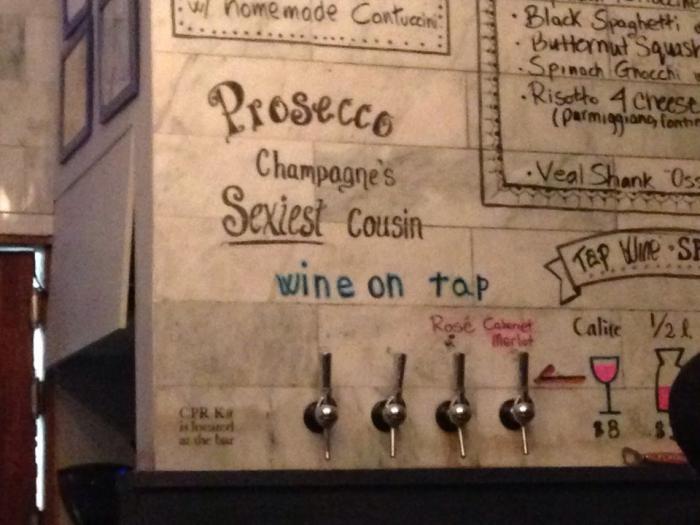 w/ homemade Contuccini
Black Spaghetti
Butternut Squash
Spinach Gnocchi
Risotto 4 cheese
(parmiggiano, fontin
Veal Shank Oss
Prosecco
Champagne's
Sexiest Cousin
wine on tap
Tap Wine SP
Rosé Cabernet
Merlot
Calice 1/2 l
$8 $
CPR Kit
is located
at the bar